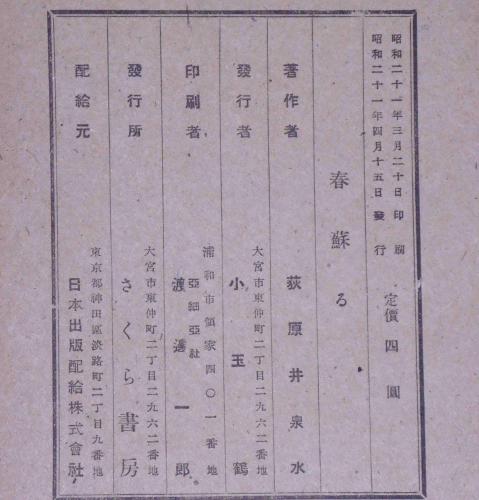 昭和二十一年三月二十日印刷
昭和二十一年四月十五日發行
定價四圓
春蘇る
著作者 荻原井泉水
大宮市東仲町二丁目二九六二番地
發行者 小玉鶴
浦和市領家四〇一番地
亞細亞社
印刷者 渡邊一郎
大宮市東仲町二丁目二九六二番地
發行所 さくら書房
東京都神田區淡路町二丁目九番地
配給元 日本出版配給株式會社